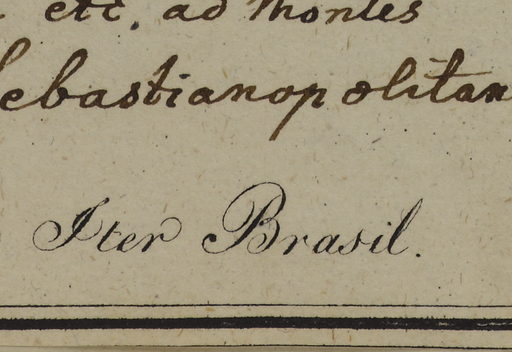 etc. ad Montes
Sebastianopolitan
Iter Brasil.